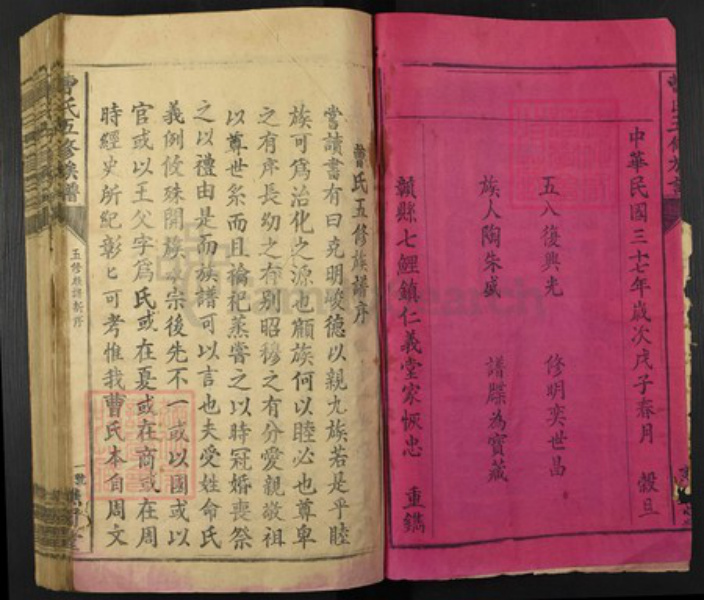 中華民國三十七年歲次戊子春月 穀旦
五八復興光 修明奕世昌
族人陶朱盛 譜牒為寶藏
贛縣七鯉鎮仁義堂家恢忠 重鐫
曹氏五修族譜序
嘗讀書有曰克明峻德以親九族若是乎睦
族可爲治化之源也顧族何以睦必也尊卑
之有序長幼之有別昭穆之有分愛親敬祖
以尊世系而且禴祀蒸嘗之以時冠婚喪祭
之以禮由是而族譜可以言也夫受姓命氏
義例攸殊開族 宗後先不一或以國或以
官或以王父字爲氏或在夏或在商或在周
時經史所紀彰匕可考惟我曹氏本自周文
曹氏五修族譜
五修族譜新序
一